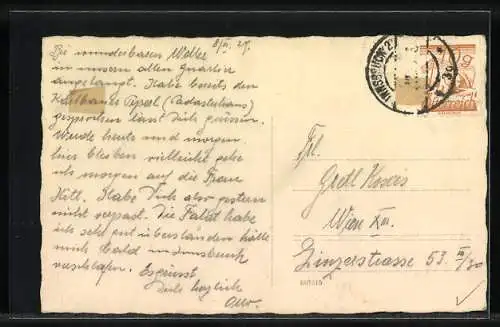 6/VI. 27.
Bei wunderbarem Wetter
in unserem alten Quartier
angelangt. Habe bereits den
Pepperl
gesprochen lässt Dich grüssen.
Werde heute und morgen
hier bleiben vielleicht gehe
ich morgen auf die Frau
Hitt. Habe Dich also gestern
nicht verpasst. Die Fahrt habe
ich sehr gut überstanden hätte
mich bald in Innsbruck
verschlafen. Es grüsst
Dich herzlich
INNSBRUCK 2
Frl.
Gretl
Wien XIII.
Linzerstrasse 53 III/30